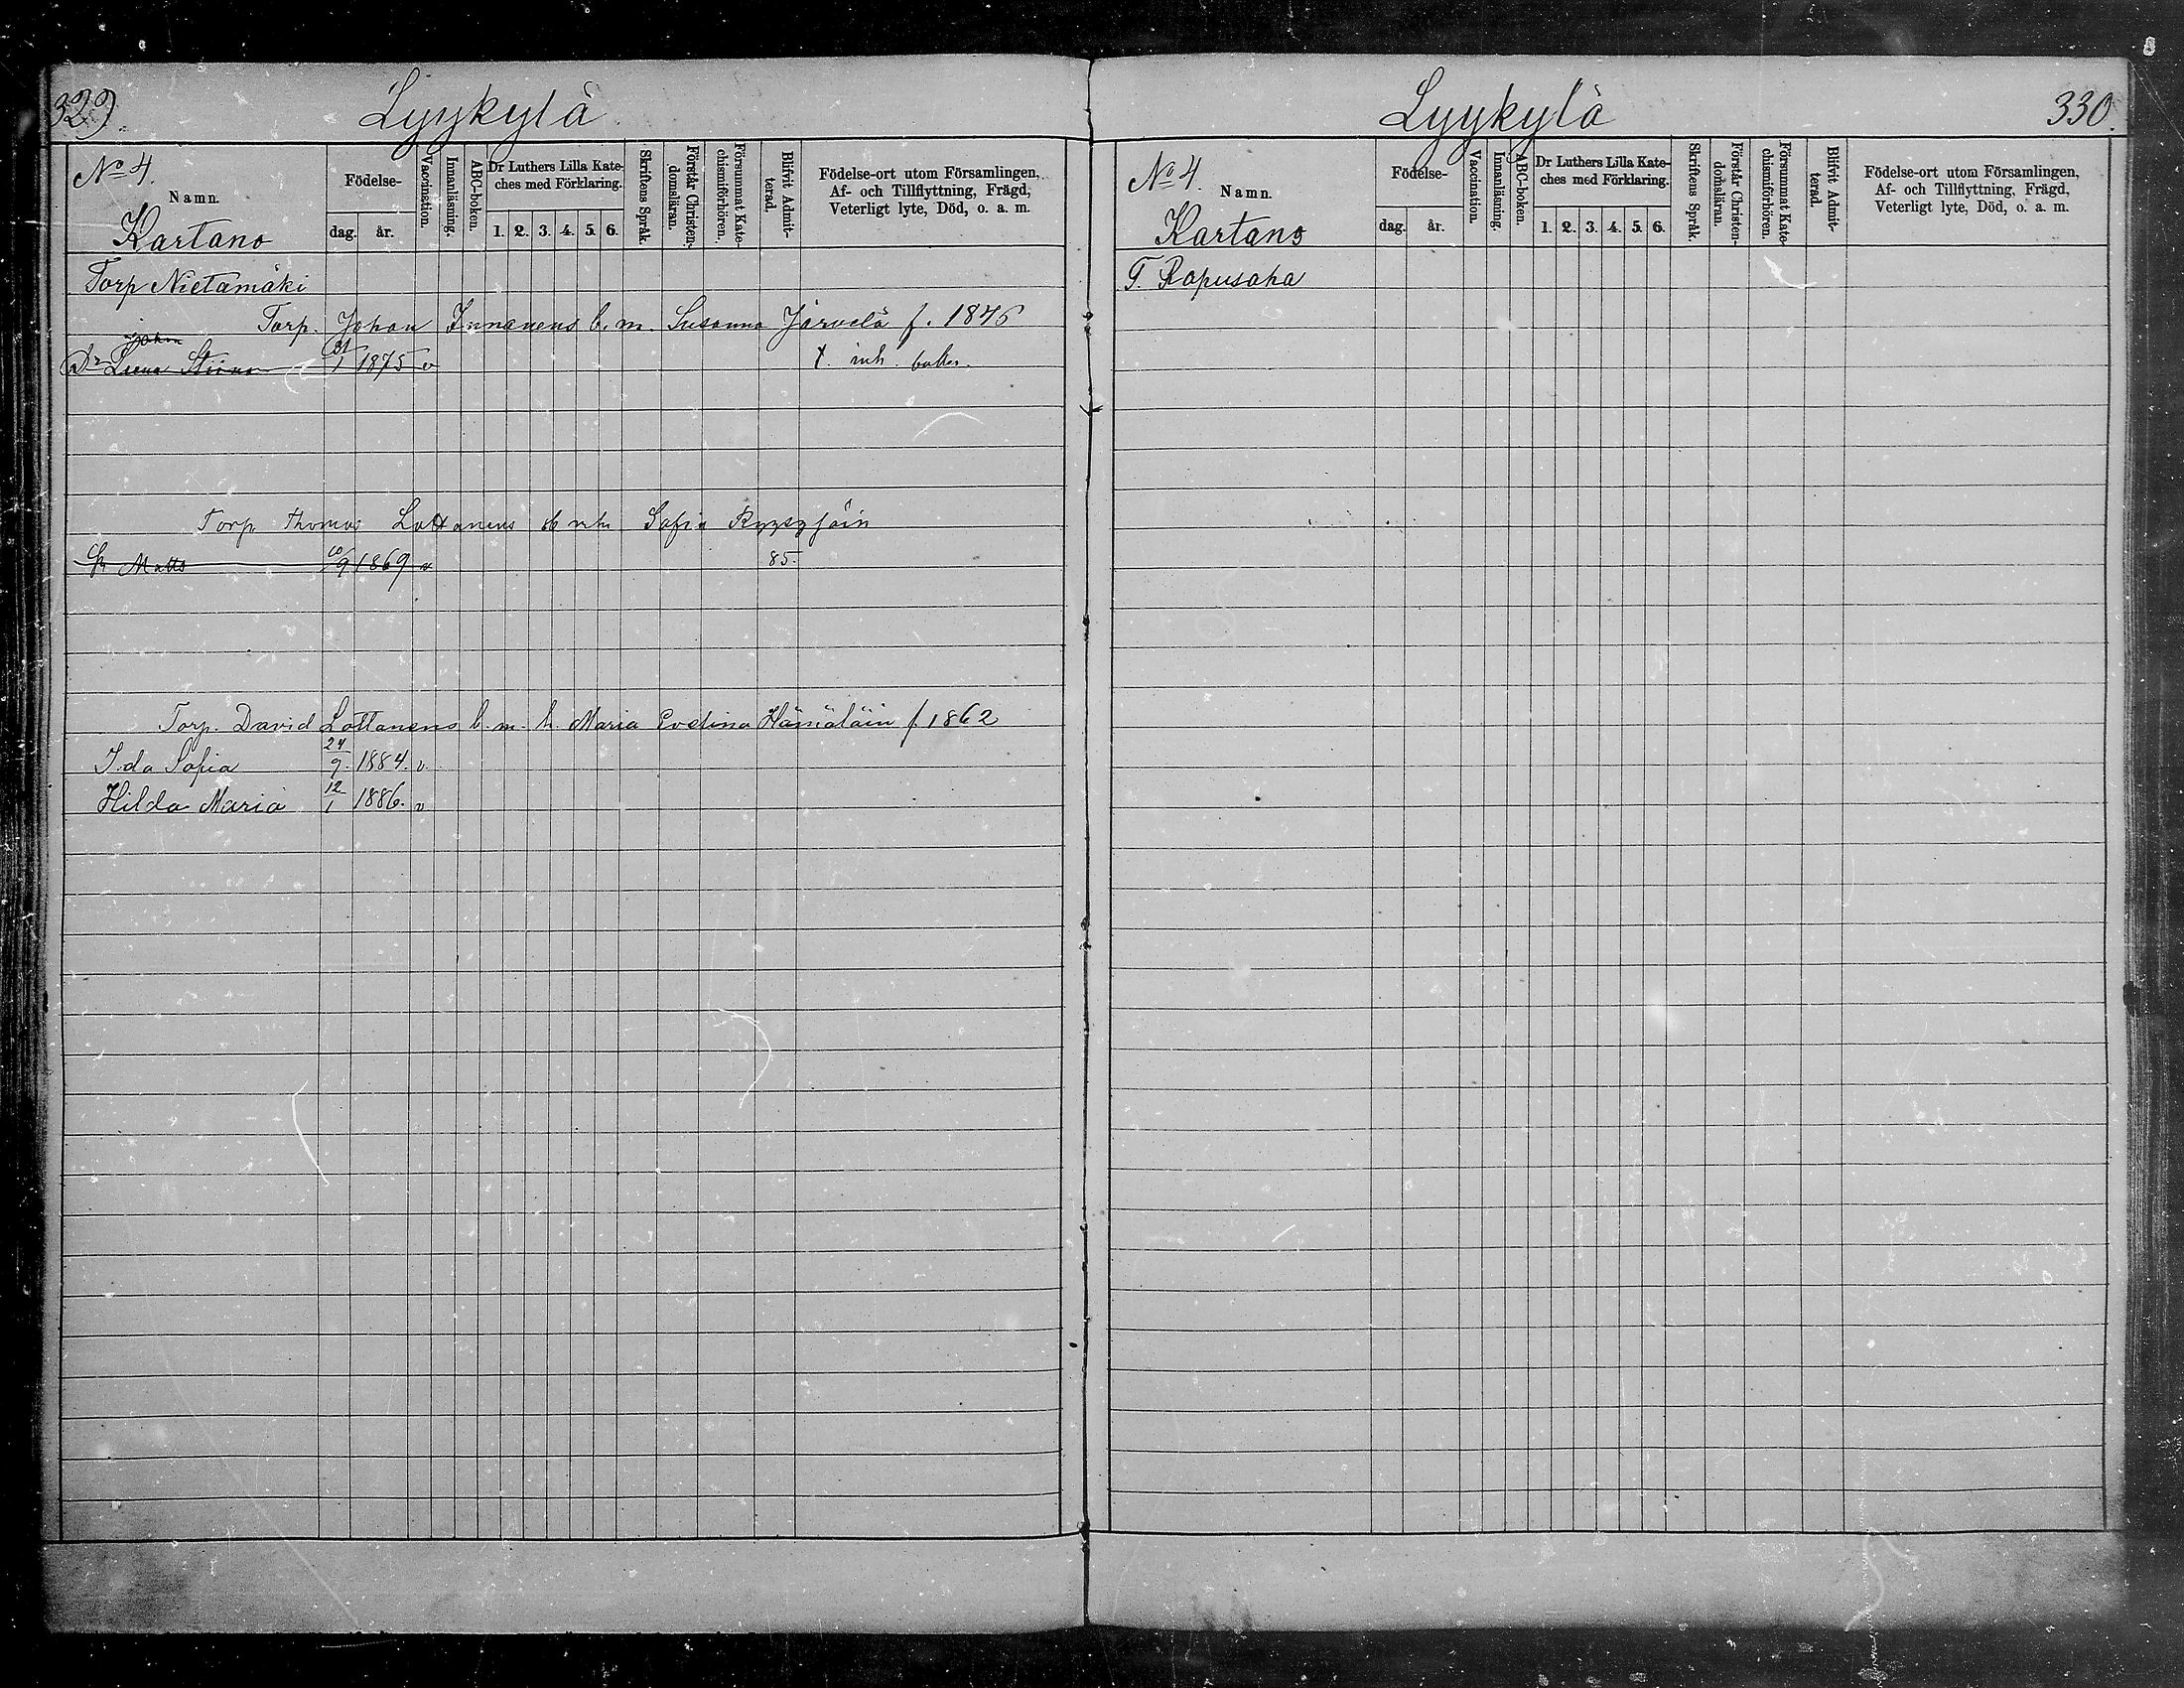 329.
Lyykylä
No 4.
Namn.
Kartano
Födelse-
dag. år.
Vaccination.
Innanläsning.
ABC-boken.
Dr Luthers Lilla Kate-
ches med Förklaring.
1. 2. 3. 4. 5. 6.
Skriftens Språk.
Förstår Christen-
domsläran.
Försummat Kate-
chismiförhören.
Blifvit Admit-
terad.
Födelse-ort utom Församlingen,
Af- och Tillflyttning, Frägd,
Veterligt lyte, Död, o. a. m.
Torp Nietamäki
Torp. Johan Innanens b. m. Susanna Järvelä f. 1846
Johan
Dr Leena Stiina 31/1 1875 v inh.
Torp Thomas Lattanens Sofia
Matts 10/9 1869 v 85.
Torp. David Lattanens b. m. h. Maria Evelina Hämäläin f. 1862
Ida Sofia 24/9. 1884. v.
Hilda Maria 12/1 1886. v
Lyykylä
330.
No 4.
Namn.
Kartano
Födelse-
dag. år.
Vaccination.
Innanläsning.
ABC-boken.
Dr Luthers Lilla Kate-
ches med Förklaring.
1. 2. 3. 4. 5. 6.
Skriftens Språk.
Förstår Christen-
domsläran.
Försummat Kate-
chismiförhören.
Blifvit Admit-
terad.
Födelse-ort utom Församlingen,
Af- och Tillflyttning, Frägd,
Veterligt lyte, Död, o. a. m.
T. Rapusaha